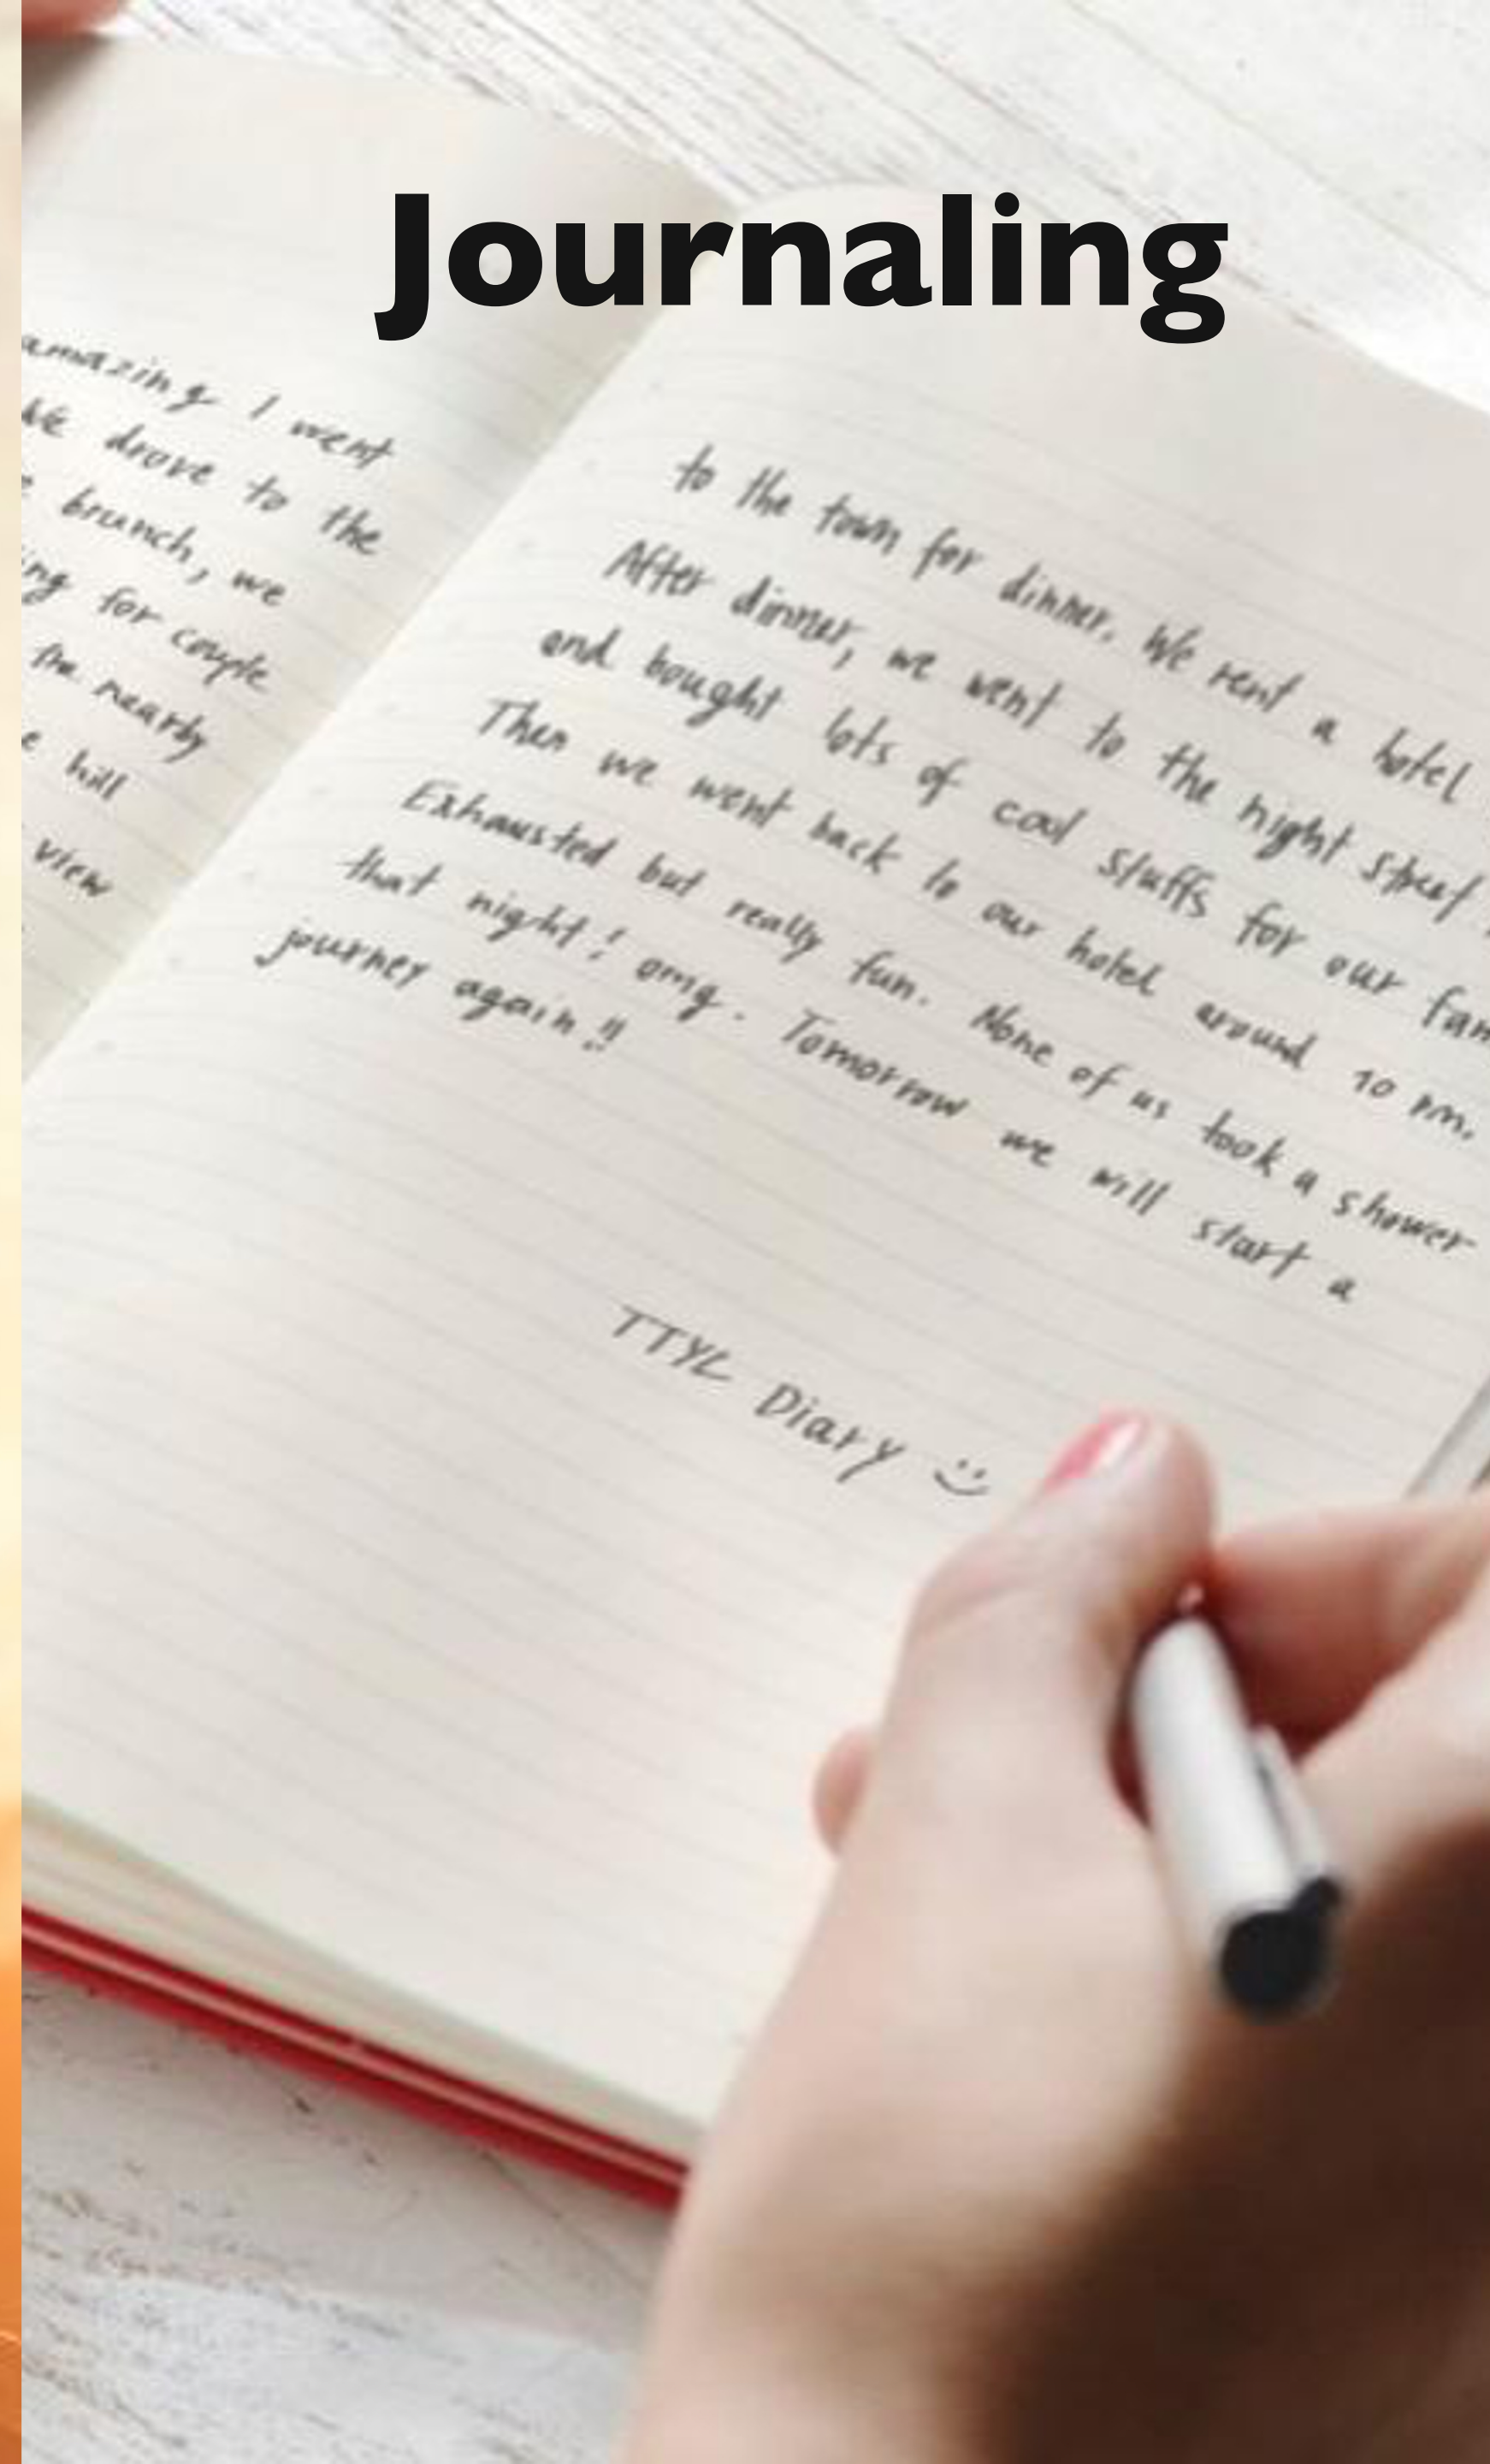 Journaling
amazing. I went
We drove to the
brunch, we
ing for couple
the nearby
hill
view
to the town for dinner. We rent a hotel
After dinner, we went to the night street
and bought lots of cool stuffs for our fam
Then we went back to our hotel around 10 pm.
Exhausted but really fun. None of us took a shower
that night! omg. Tomorrow we will start a
journey again!!
TTYL Diary